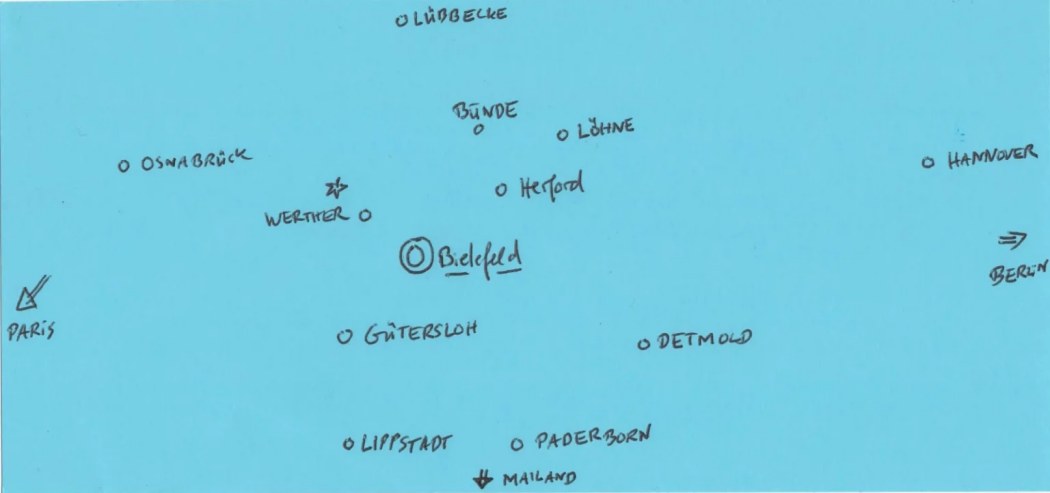 LÜBBECKE
BÜNDE
LÖHNE
OSNABRÜCK
HANNOVER
Herford
WERTHER
Bielefeld
BERLIN
PARIS
GÜTERSLOH
DETMOLD
LIPPSTADT
PADERBORN
MAILAND